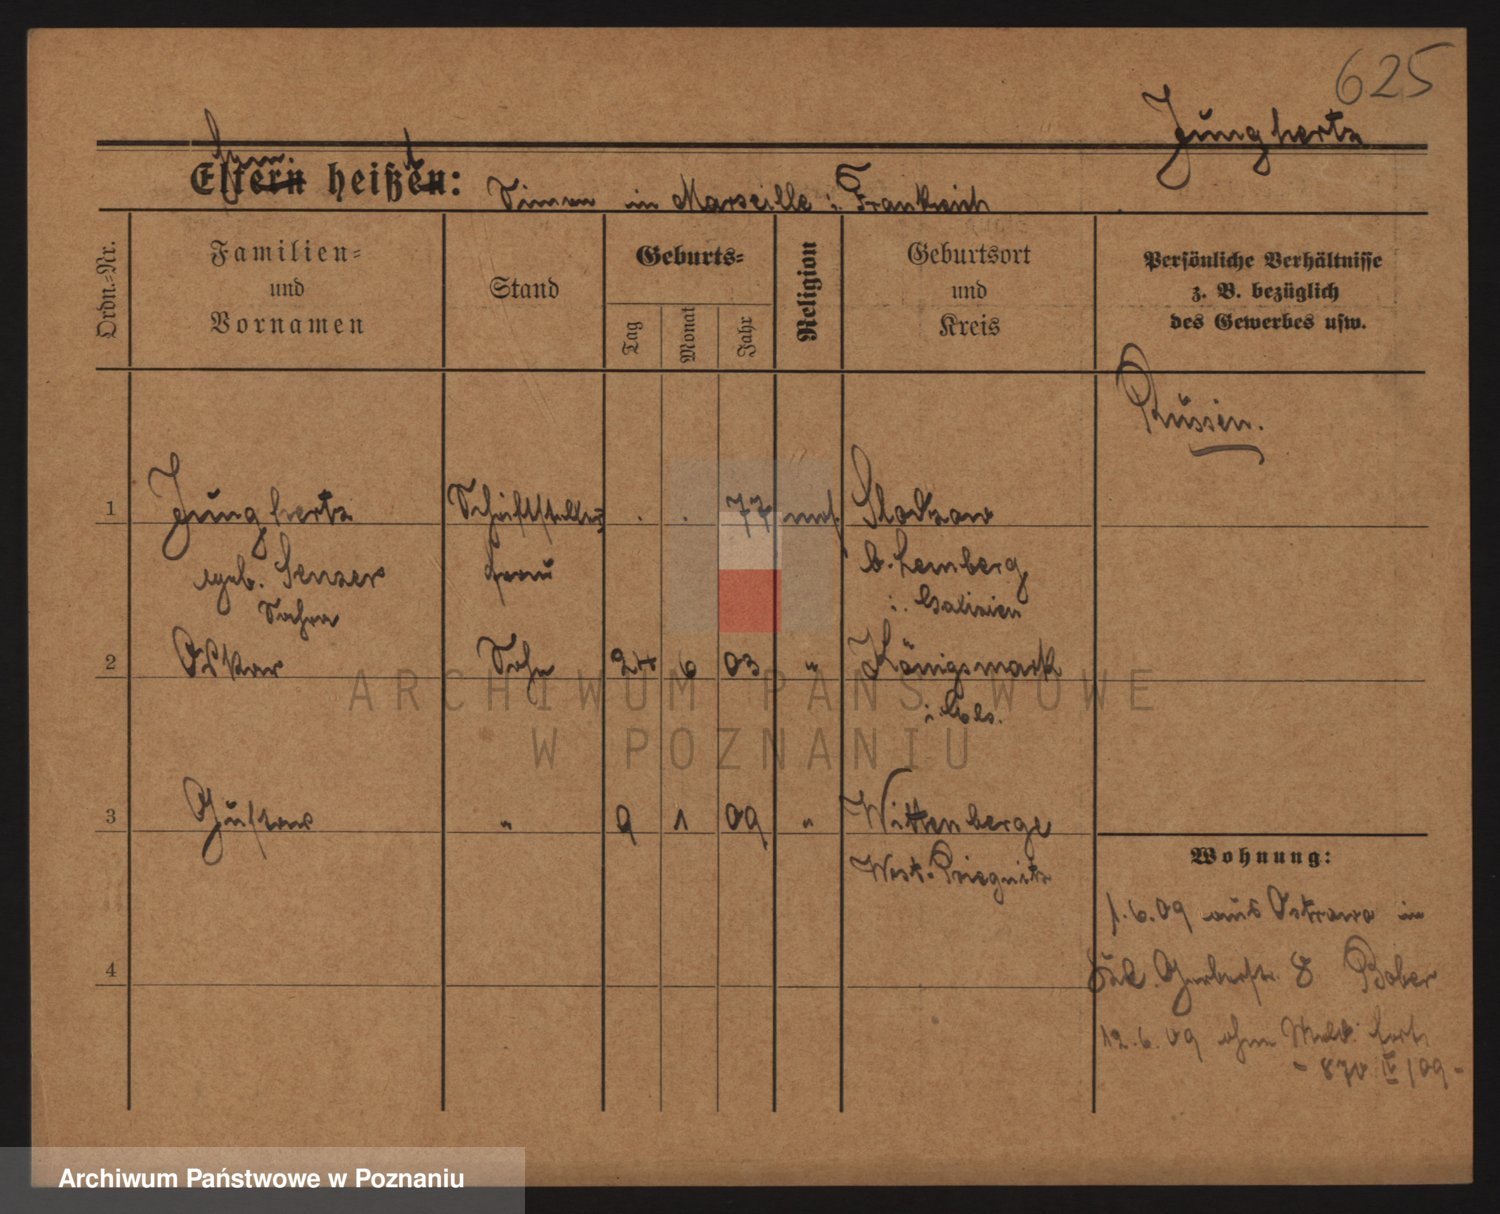 625
Junghertz
Eltern heißen:
Simon in Marseille i. Frankreich
Ordn.-Nr.
Familien-
und
Vornamen
Stand
Geburts-
Tag
Monat
Jahr
Religion
Geburtsort
und
Kreis
Persönliche Verhältnisse
z. B. bezüglich
des Gewerbes usw.
1
Junghertz
geb. Senzer
Sahra
Schriftsteller
frau
77
mos.
b. Lemberg
i. Galizien
2
Oskar
Sohn
24 6 03 "
Königsmark
3
Gustav
"
9 1 09 "
Wittenberge
West-Priegnitz
4
Wohnung:
1.6.09 aus Ostrowo in
Gerberstr. 8 Bober
12.6.09 ohne Meld. fort
- 870 IV/09 -
ARCHIWUM PAŃSTWOWE
W POZNANIU
Archiwum Państwowe w Poznaniu